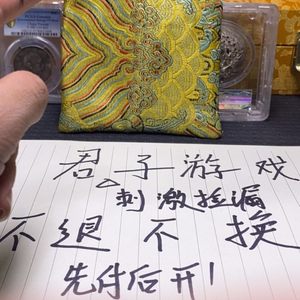 君子游戏
刺激捡漏
不退不换
先付后开！